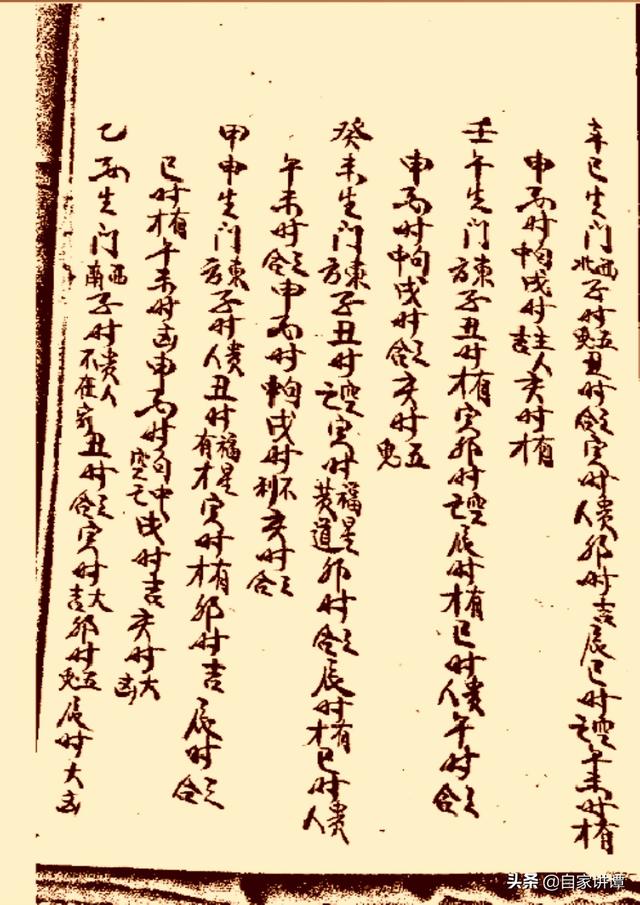 辛巳生门西北子时五鬼丑时合寅时贵人卯时吉辰巳时空亡午未时有才
申酉时中句戌时主人吉亥时有才
壬午生门东方子丑时有才寅卯时空亡辰时有才巳时贵人午时合
申酉时中句戌时合亥时五鬼
癸未生门东方子丑时空亡寅时福星黄道卯时合辰时有才巳时贵人
午未时合申酉时中句戌时不利亥时合
甲申生门东方子时贵人丑时福星有才寅时有才卯时吉辰时合
巳时有才午未时凶申酉时句中空亡戌时吉亥时大凶
乙酉生门西南子时贵人不在家丑时合寅时大吉卯时五鬼辰时大凶
头条 @自家讲谭